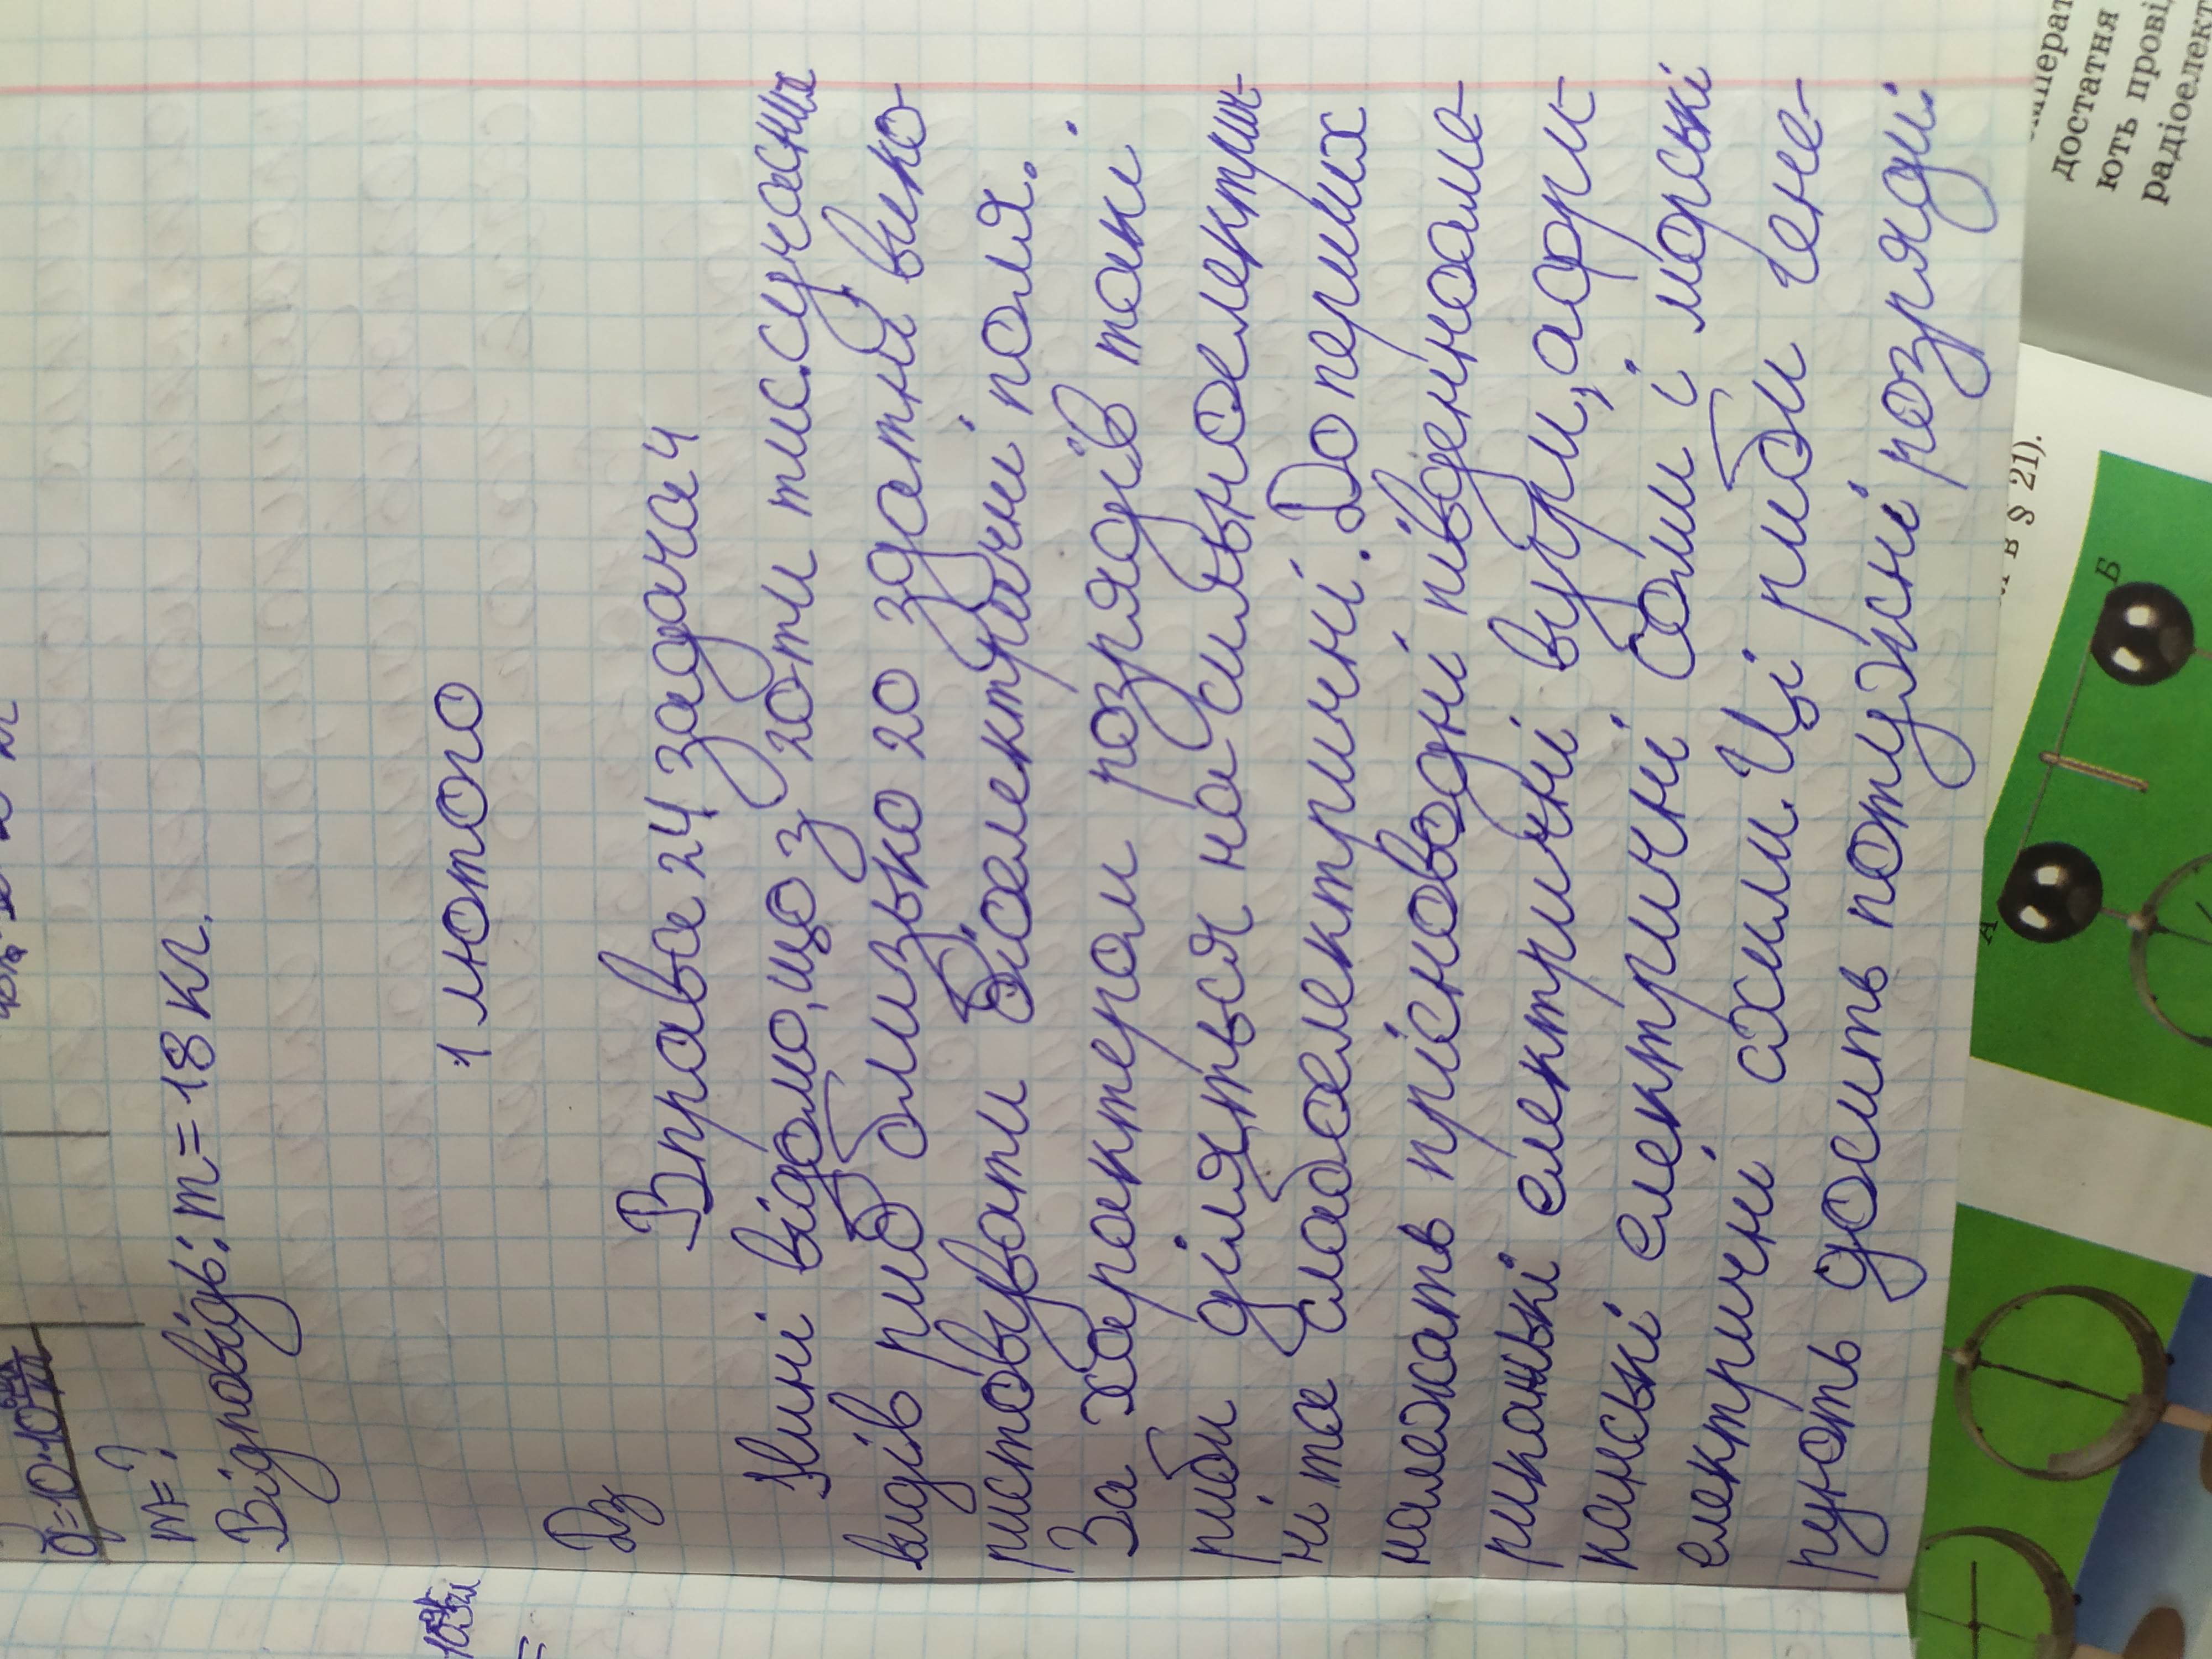 q=10·10
m=?
Відповідь: m=18 кг.
1 лютого
Дз
Вправа 24 задача 4
Нині відомо, що з 20ти тис. сучасних
видів риб близько 20 здатні вико-
ристовувати біоелектричні поля.
За характером розрядів такі
риби діляться на сильноелектрич-
ні та слабоелектричні. До перших
належать прісноводні південноаме-
риканські електричні вугри, афри-
канські електричні соми і морські
електричні схили. Ці риби гене-
рують досить потужні розряди:
достатня
ють прові
радіоелект
в § 21).
А
Б